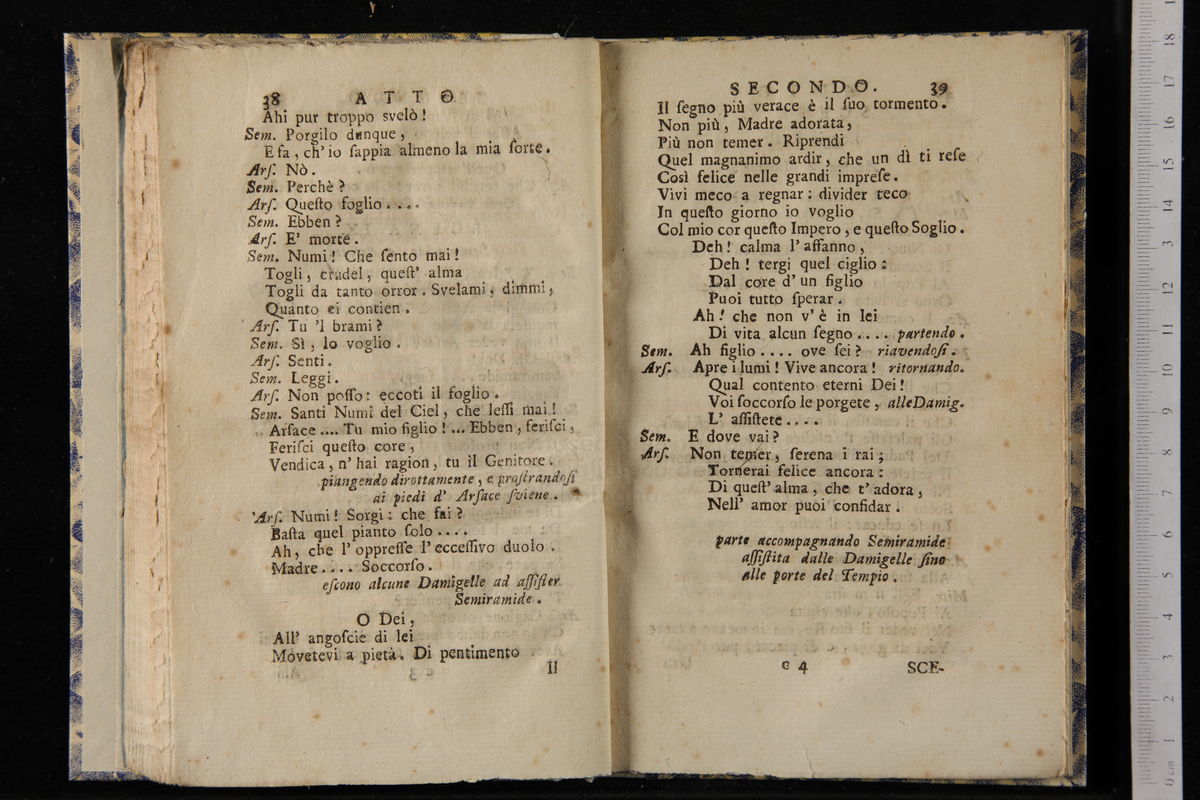 38 ATTO
Ahi pur troppo svelò!
Sem. Porgilo dunque,
E fa, ch' io ſappia almeno la mia ſorte.
Arſ. Nò.
Sem. Perchè?
Arſ. Queſto foglio....
Sem. Ebben?
Arſ. E' morte.
Sem. Numi! Che ſento mai!
Togli, crudel, queſt' alma
Togli da tanto orror. Svelami, dimmi,
Quanto ei contien.
Arſ. Tu 'l brami?
Sem. Sì, lo voglio.
Arſ. Senti.
Sem. Leggi.
Arſ. Non poſſo: eccoti il foglio.
Sem. Santi Numi del Ciel, che leſſi mai!
Arſace .... Tu mio figlio! ... Ebben, feriſci,
Feriſci queſto core,
Vendica, n' hai ragion, tu il Genitore.
piangendo dirottamente, e proſtrandoſi
ai piedi d' Arſace ſviene.
Arſ. Numi! Sorgi: che fai?
Baſta quel pianto ſolo....
Ah, che l' oppreſſe l' ecceſſivo duolo.
Madre.... Soccorſo.
eſcono alcune Damigelle ad aſſiſter
Semiramide.
O Dei,
All' angoſcie di lei
Movetevi a pietà. Di pentimento
Il
SECONDO. 39
Il ſegno più verace è il ſuo tormento.
Non più, Madre adorata,
Più non temer. Riprendi
Quel magnanimo ardir, che un dì ti reſe
Così felice nelle grandi impreſe.
Vivi meco a regnar: divider teco
In queſto giorno io voglio
Col mio cor queſto Impero, e queſto Soglio.
Deh! calma l' affanno,
Deh! tergi quel ciglio:
Dal core d' un figlio
Puoi tutto ſperar.
Ah! che non v' è in lei
Di vita alcun ſegno.... partendo.
Sem. Ah figlio.... ove ſei? riavendoſi.
Arſ. Apre i lumi! Vive ancora! ritornando.
Qual contento eterni Dei!
Voi ſoccorſo le porgete, alle Damig.
L' aſſiſtete....
Sem. E dove vai?
Arſ. Non temer, ſerena i rai;
Tornerai felice ancora:
Di queſt' alma, che t' adora,
Nell' amor puoi confidar.
parte accompagnando Semiramide
aſſiſtita dalle Damigelle ſino
alle porte del Tempio.
C 4 SCE-